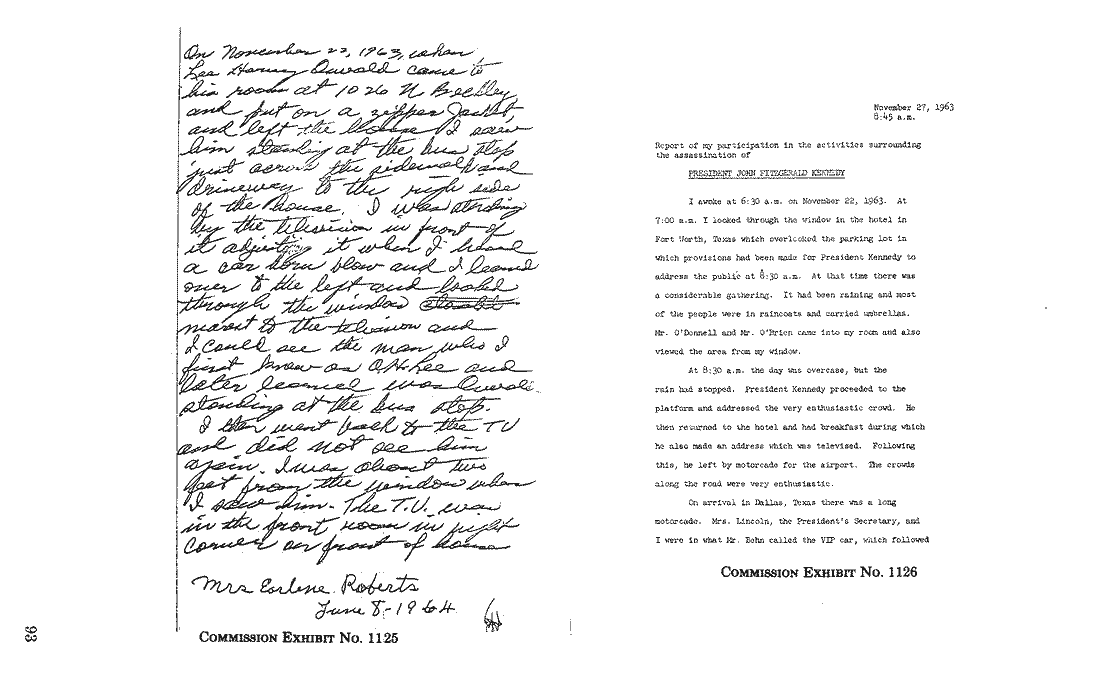 On November 22, 1963, when
Lee Harvey Oswald came to
his room at 1026 N Beckley
and put on a zipper Jacket,
and left the house I saw
him standing at the bus stop
just across the sidewalk and
driveway to the right side
of the house. I was standing
by the television in front of
it adjusting it when I heard
a car horn blow and I leaned
over to the left and looked
through the window
nearest to the television and
I could see the man who I
first knew as O.H. Lee and
later learned was Oswald
standing at the bus stop.
I then went back to the TV
and did not see him
again. I was about two
feet from the window when
I saw him. The T.V. was
in the front room in right
corner on front of house
Mrs Earlene Roberts
June 8-1964
COMMISSION EXHIBIT No. 1125
93
November 27, 1963
8:45 a.m.
Report of my participation in the activities surrounding
the assassination of
PRESIDENT JOHN FITZGERALD KENNEDY
I awoke at 6:30 a.m. on November 22, 1963. At
7:00 a.m. I looked through the window in the hotel in
Fort Worth, Texas which overlooked the parking lot in
which provisions had been made for President Kennedy to
address the public at 8:30 a.m. At that time there was
a considerable gathering. It had been raining and most
of the people were in raincoats and carried umbrellas.
Mr. O'Donnell and Mr. O'Brien came into my room and also
viewed the area from my window.
At 8:30 a.m. the day was overcase, but the
rain had stopped. President Kennedy proceeded to the
platform and addressed the very enthusiastic crowd. He
then returned to the hotel and had breakfast during which
he also made an address which was televised. Following
this, he left by motorcade for the airport. The crowds
along the road were very enthusiastic.
On arrival in Dallas, Texas there was a long
motorcade. Mrs. Lincoln, the President's Secretary, and
I were in what Mr. Behn called the VIP car, which followed
COMMISSION EXHIBIT No. 1126